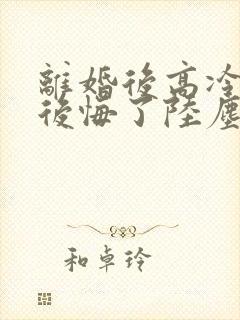 離婚後高冷
後悔了陸塵
和卓玲